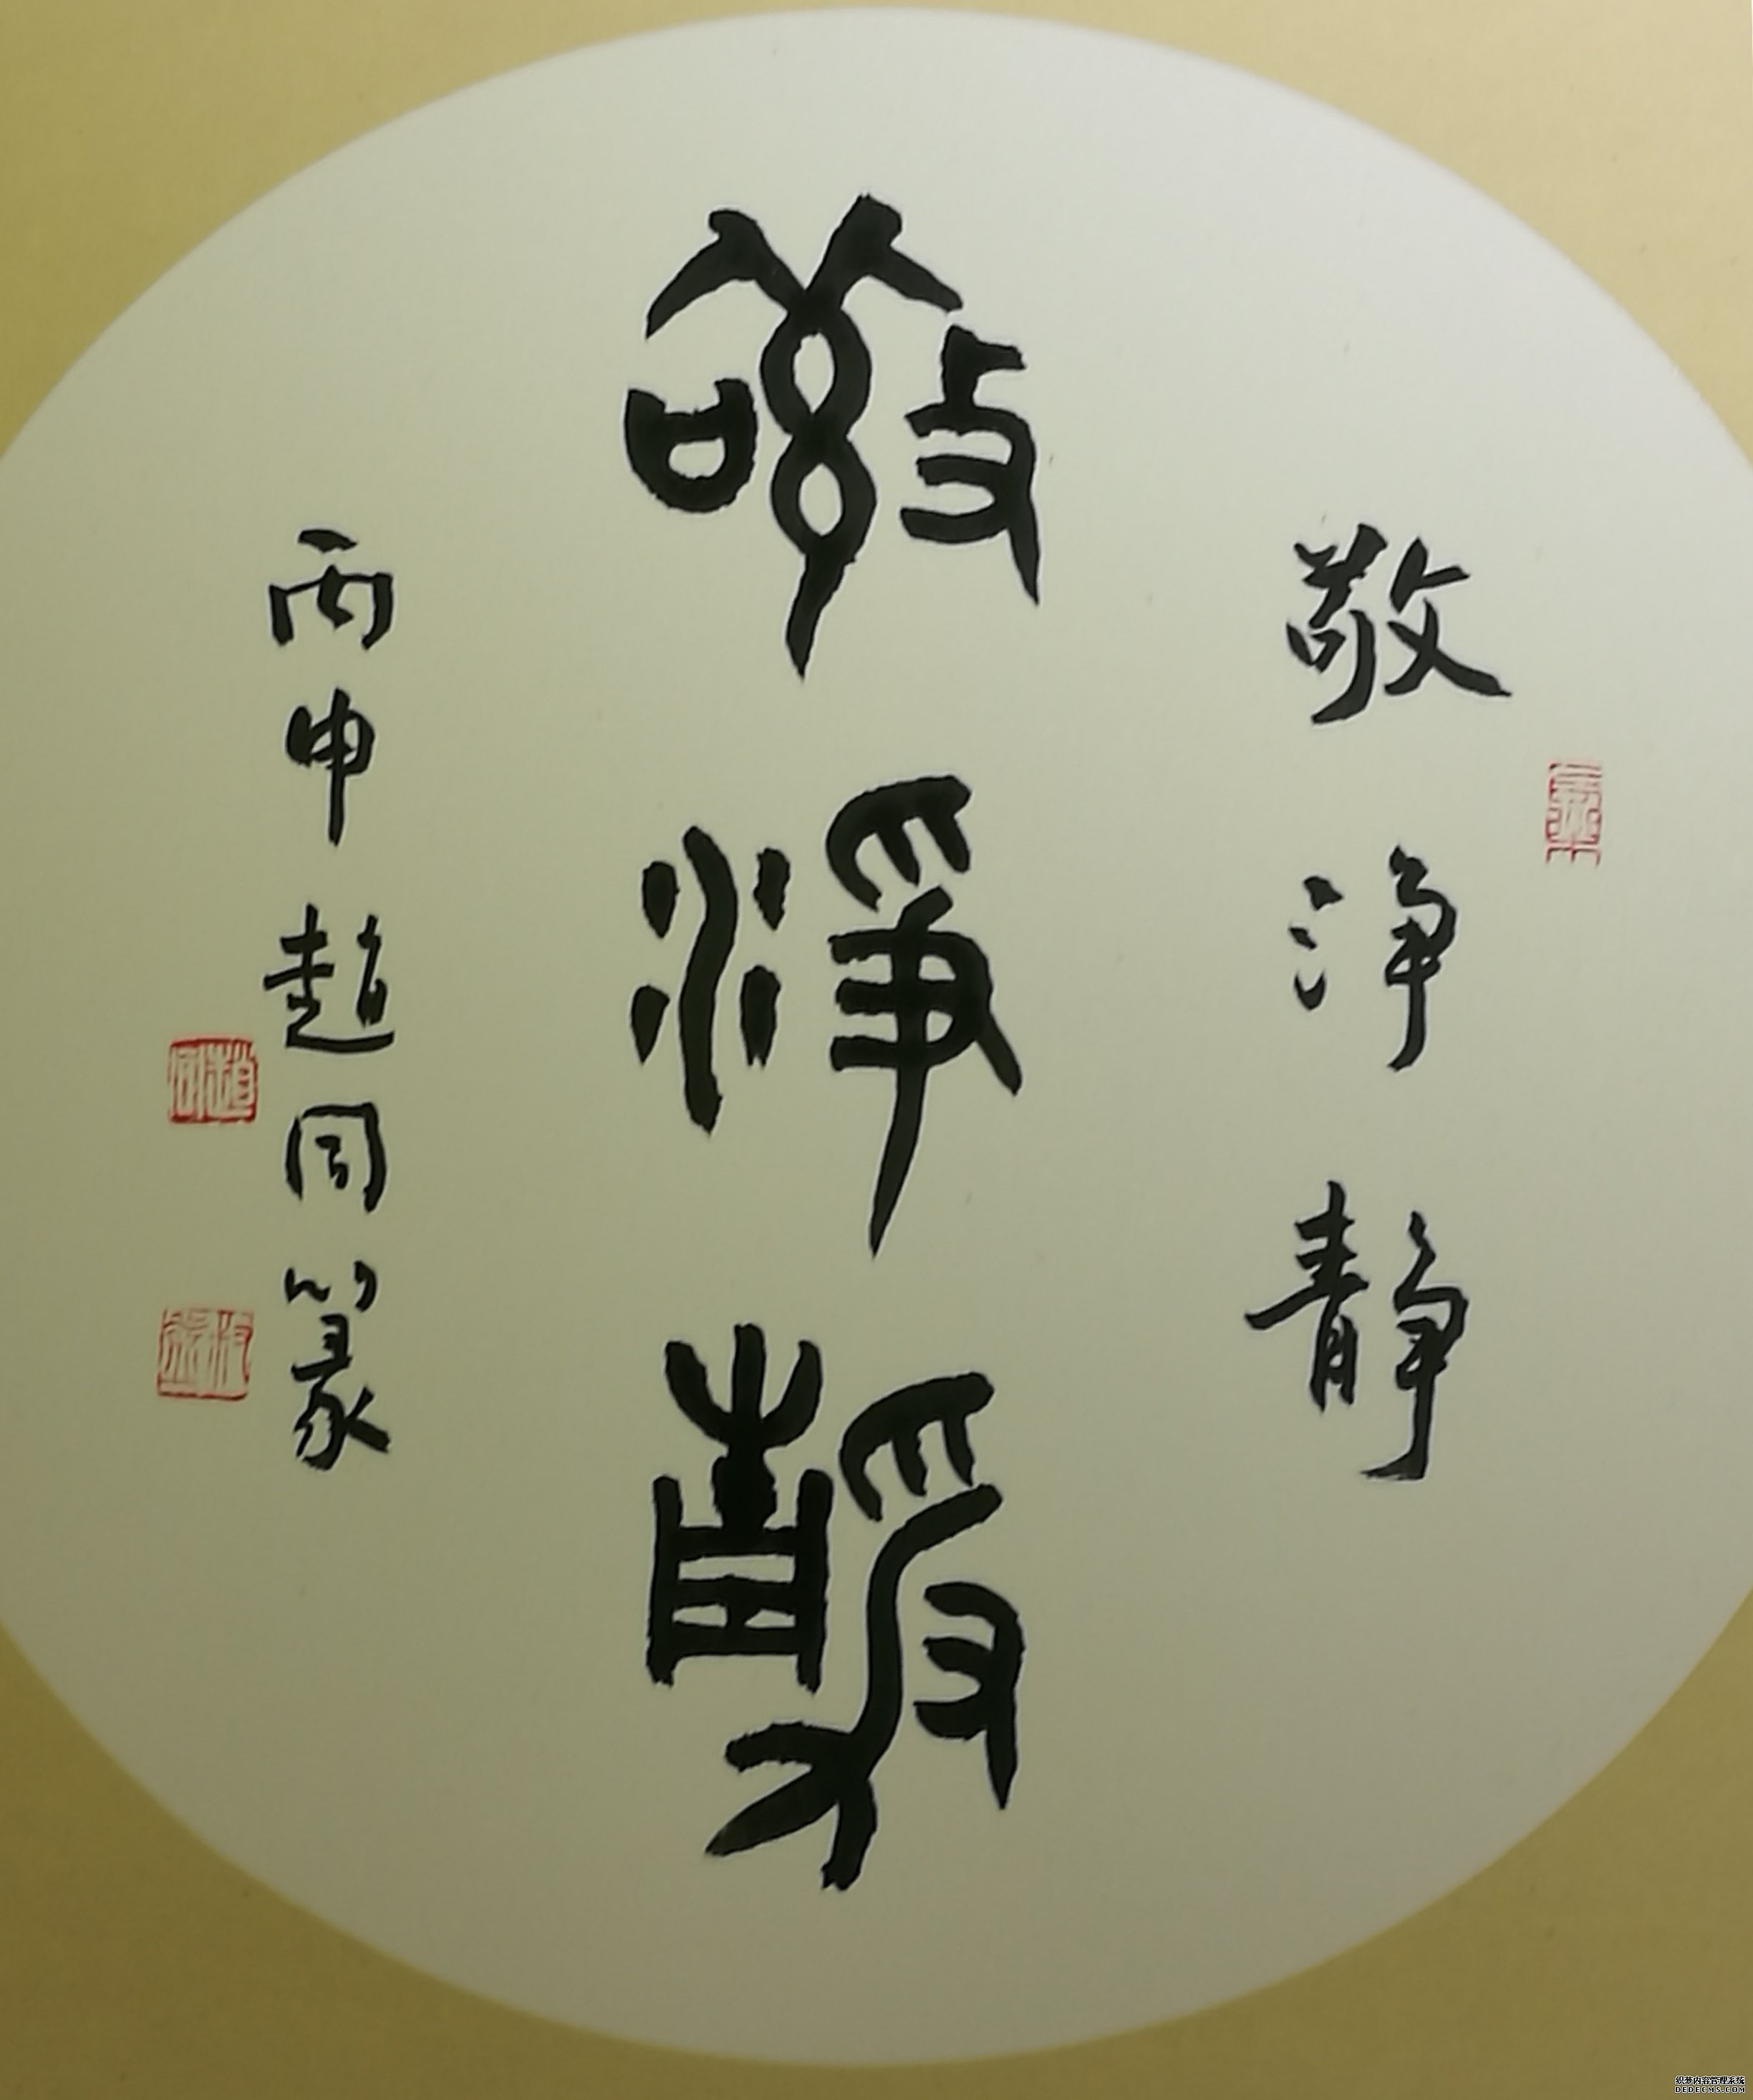 敬净静
敬净静
丙申赵同篆
织梦内容管理系统
DEDECMS.COM